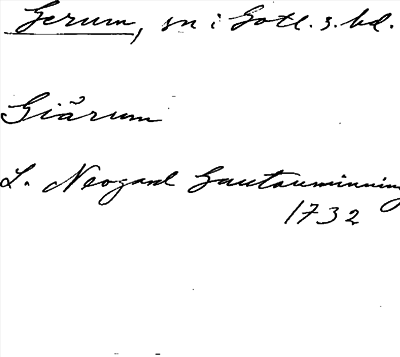 Gerum, sn i Gotl. s. hd.
Giärum
L. Neogard Gautauminning
1732